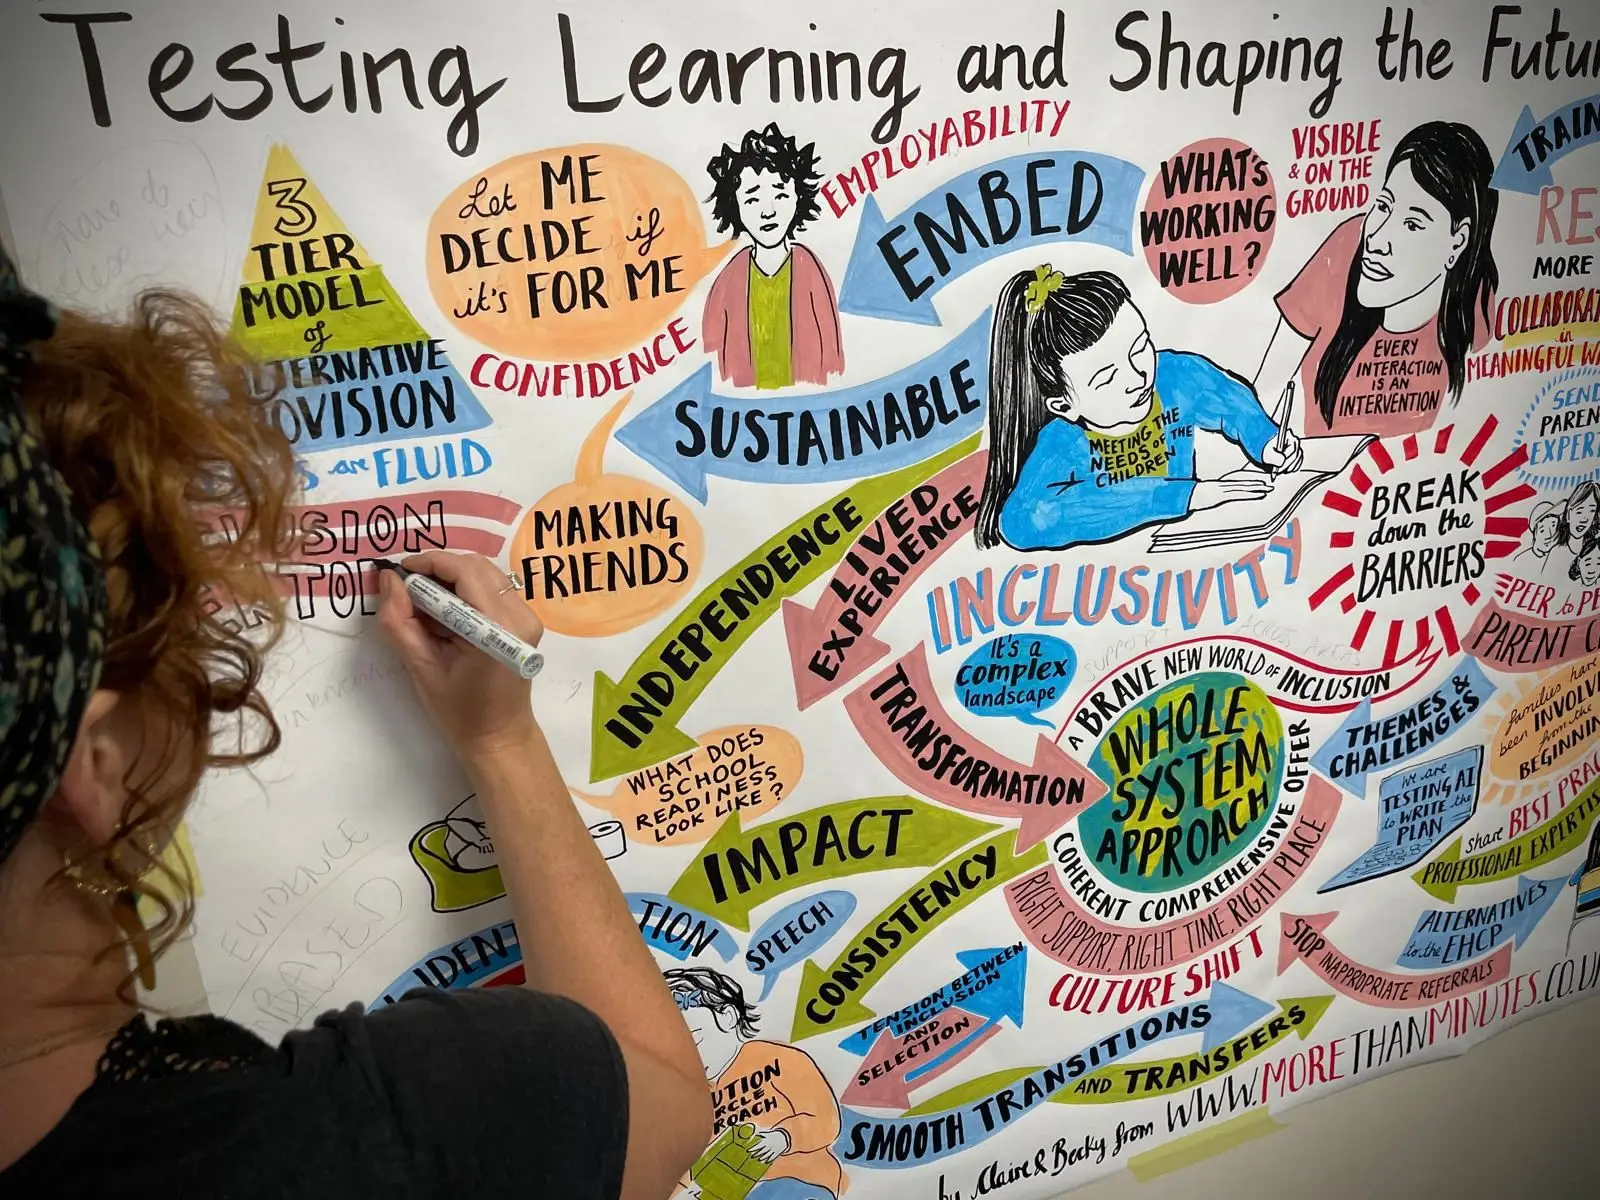 Testing Learning and Shaping the Futur
3
TIER
MODEL
of
LTERNATIVE
OVISION
are FLUID
Let ME
DECIDE if
it's FOR ME
CONFIDENCE
EMPLOYABILITY
EMBED
WHAT'S
WORKING
WELL?
VISIBLE
& ON THE
GROUND
TRAIN
RE
MORE
COLLABORAT
in
MEANINGFUL WA
EVERY
INTERACTION
IS AN
INTERVENTION
SEND
PAREN
EXPERT
SUSTAINABLE
MEETING THE
NEEDS OF THE
CHILDREN
BREAK
down the
BARRIERS
USION
TO
MAKING
FRIENDS
INDEPENDENCE
LIVED
EXPERIENCE
INCLUSIVITY
PEER to PE
PARENT C
It's a
complex
landscape
SUPPORT ACROSS AREAS
A BRAVE NEW WORLD of INCLUSION
WHOLE
SYSTEM
APPROACH
COHERENT COMPREHENSIVE OFFER
RIGHT SUPPORT, RIGHT TIME, RIGHT PLACE
CULTURE SHIFT
TRANSFORMATION
THEMES &
CHALLENGES
families have
been INVOLVE
from the
BEGINNIN
we are
TESTING AI
to WRITE the
PLAN
share BEST PRAC
PROFESSIONAL EXPERTIS
ALTERNATIVES
to the EHCP
STOP INAPPROPRIATE REFERRALS
WHAT DOES
SCHOOL
READINESS
LOOK LIKE?
IMPACT
CONSISTENCY
EVIDENCE
BASED
IDENT
TION
SPEECH
TENSION BETWEEN
INCLUSION
AND
SELECTION
SMOOTH TRANSITIONS
AND TRANSFERS
UTION
RCLE
ROACH
by Claire & Becky from WWW.MORETHANMINUTES.CO.U